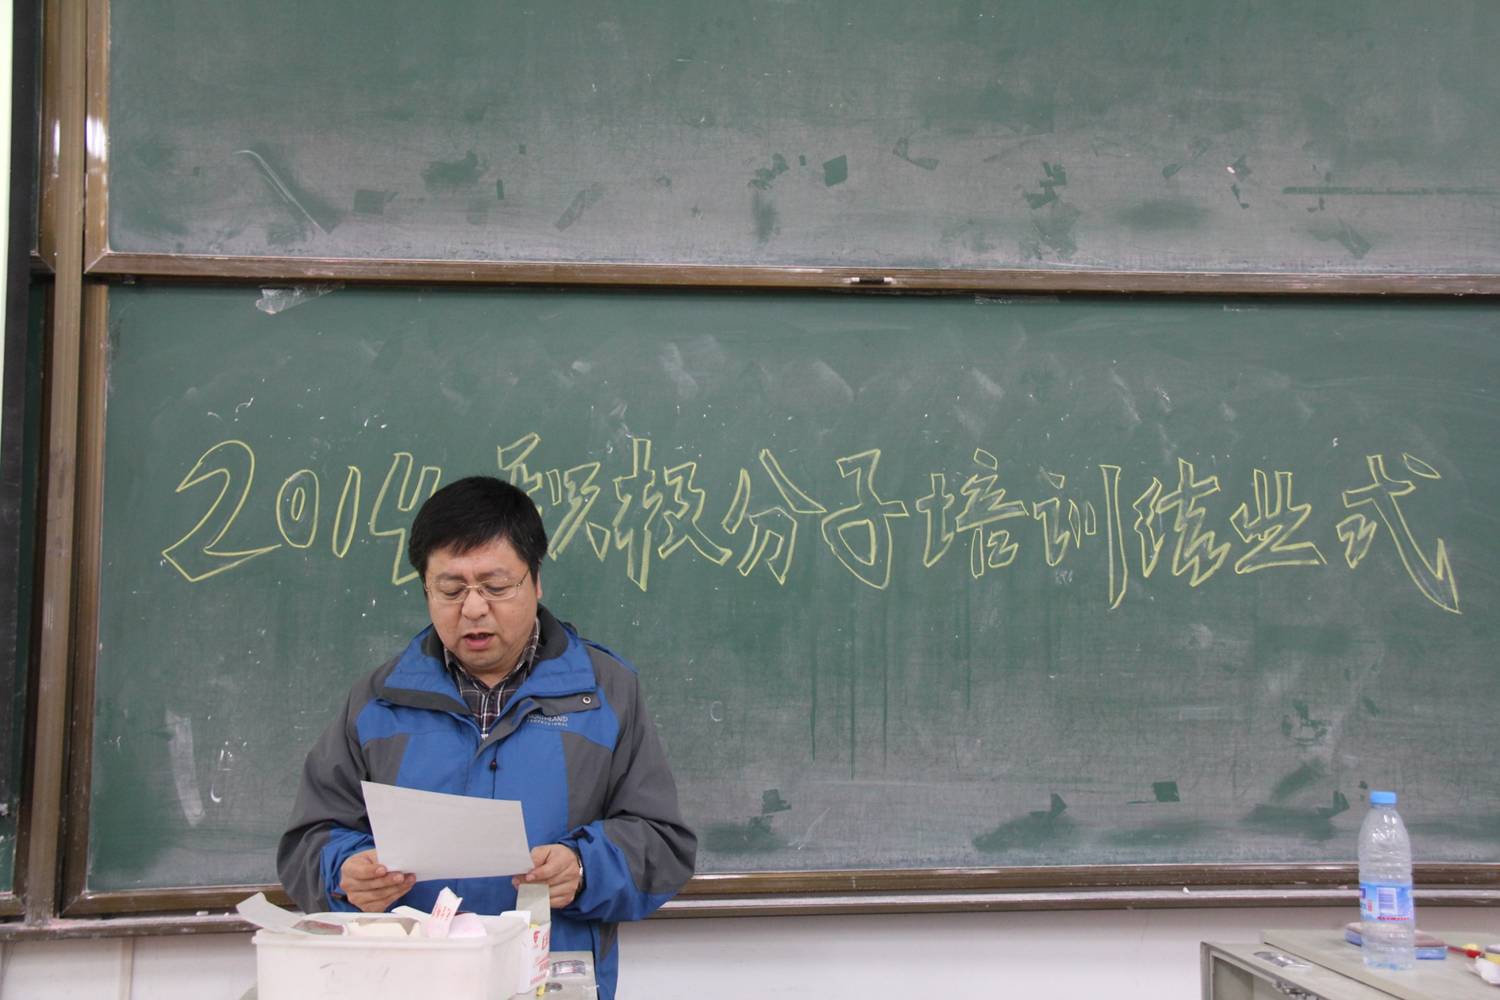 2014积极分子培训结业式